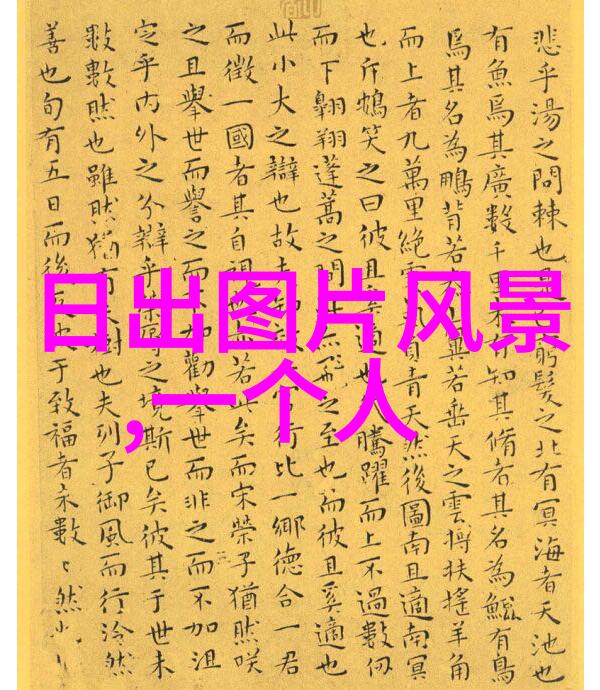 悲乎湯之問棘也是窮髮之北有冥海者天池也
有魚焉其廣數千里未有知其脩者其名為鯤有鳥
焉其名為鵬背若太山翼若垂天之雲搏扶搖羊角
而上者九萬里絕雲負青天然後圖南且適南冥
也斥鴳笑之曰彼且奚適也騰躍而上不過數仞
而下翱翔蓬蒿之間飛之至也而彼且奚適也
此小大之辯也故夫官行比一鄉德合一君
而徵一國者其自視若此矣而宋榮子猶然咲
之且舉世而譽之而不加勸舉世而非之而不加沮
定乎內外之分辯乎榮辱之境斯已矣彼其于世未
數數然也雖然猶有未樹也夫列子御風而行泠然
善也旬有五日而後反于致福者未數〻然也
日出图片风景
,一个人